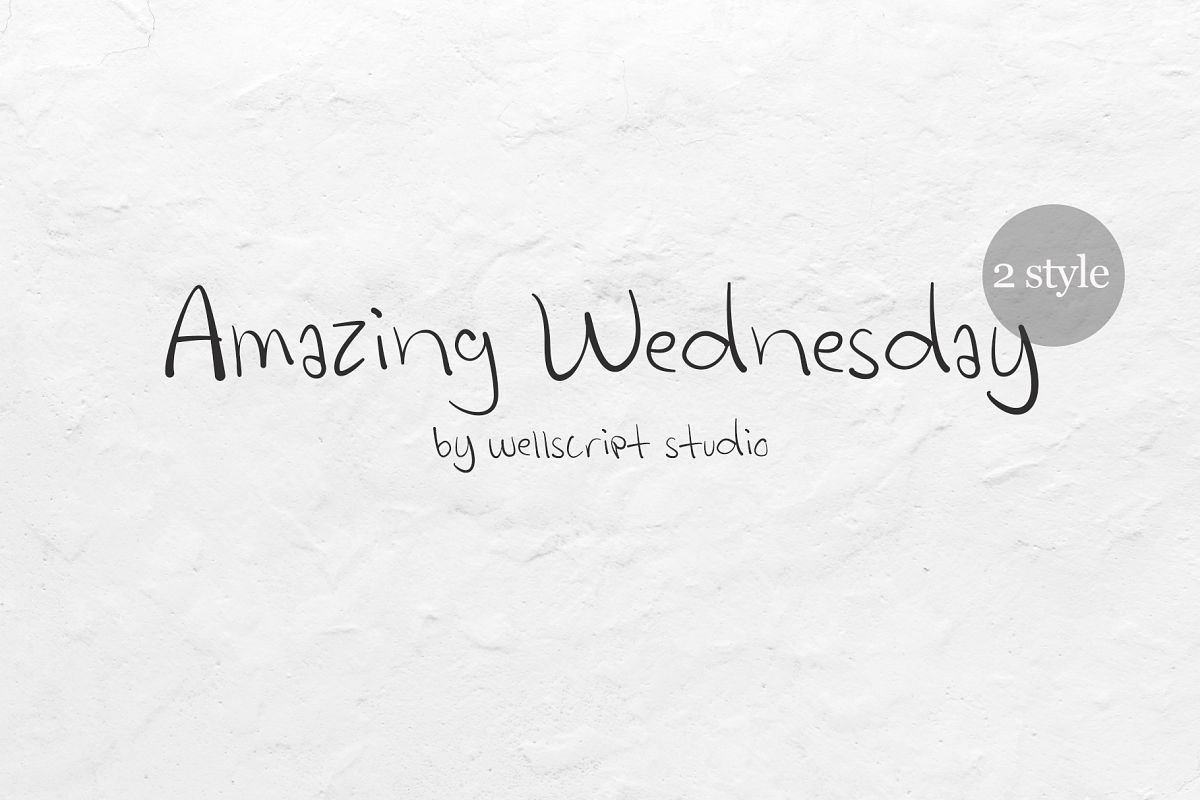 2 style
Amazing Wednesday
by wellscript studio